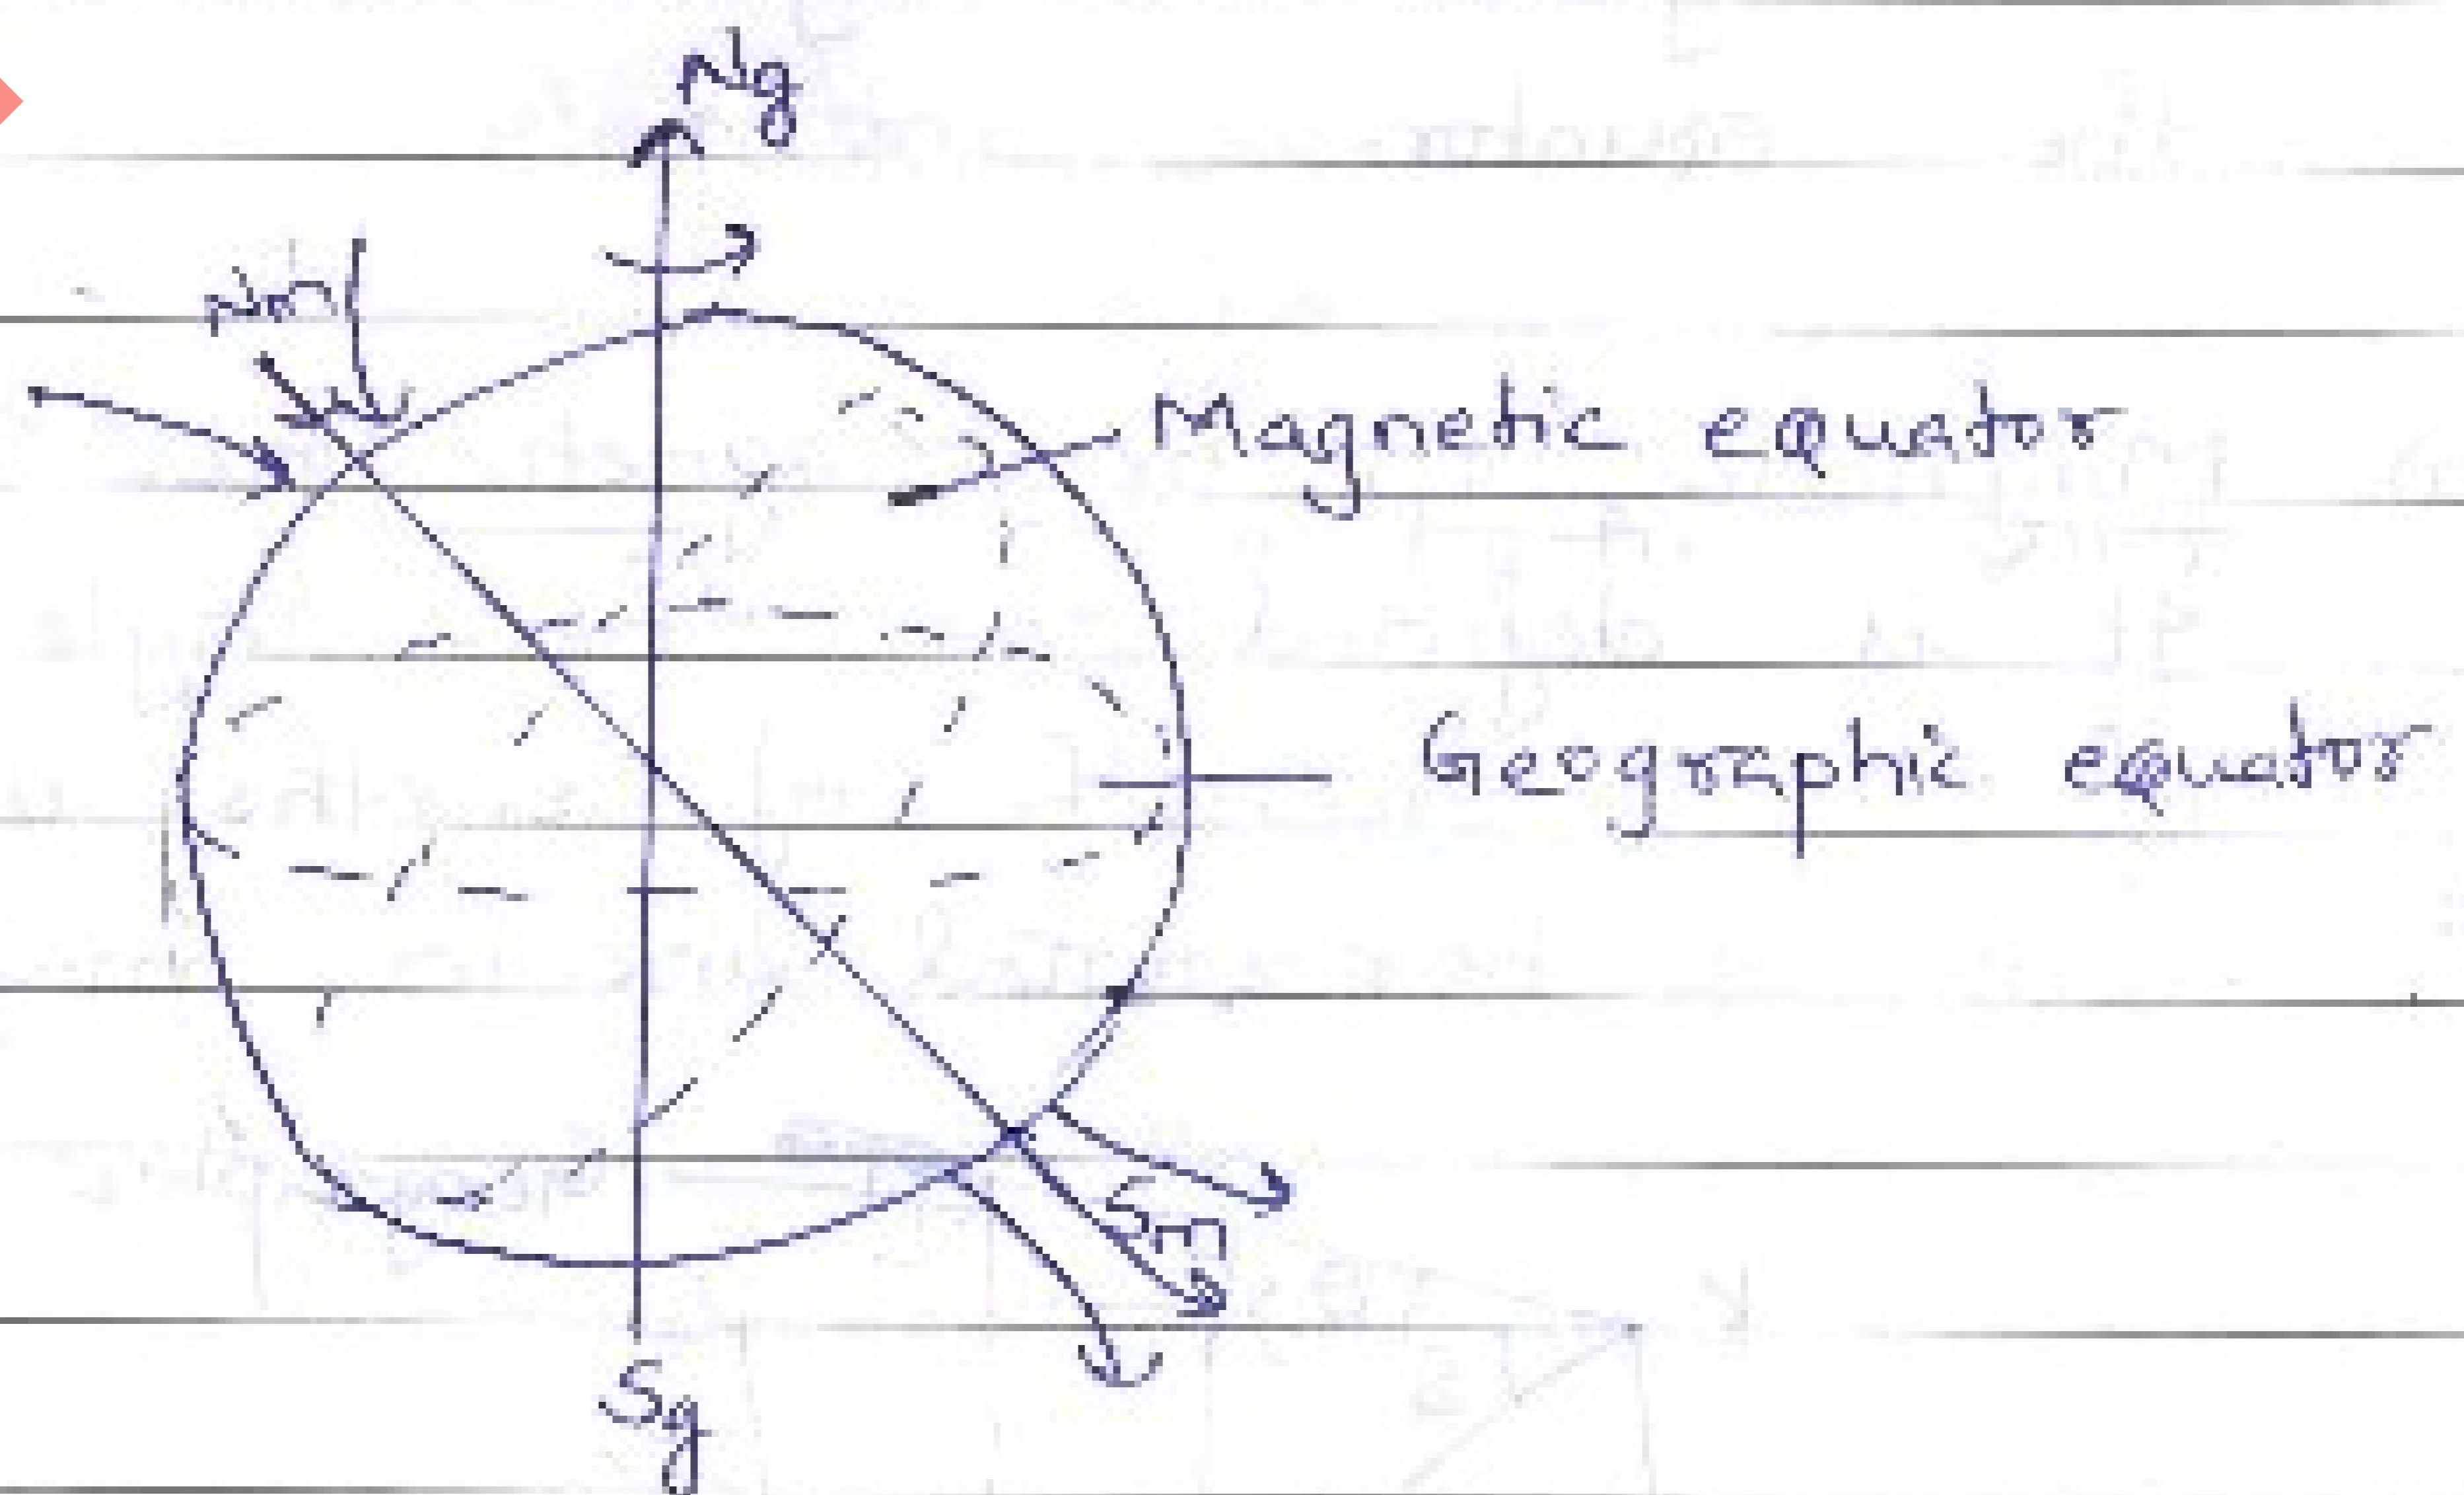 Ng
Nm
Magnetic equator
Geographic equator
Sm
Sg